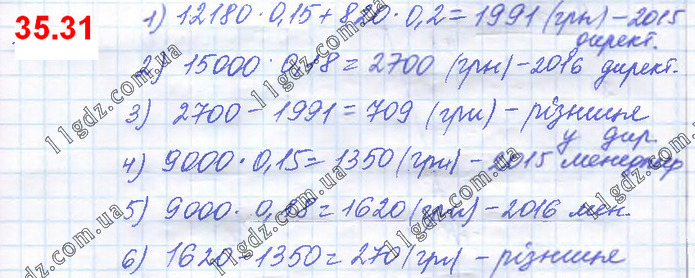 35.31
1) 12180 · 0,15 + 820 · 0,2 = 1991 (грн) – 2015
директ.
2) 15000 · 0,18 = 2700 (грн) – 2016 директ.
3) 2700 – 1991 = 709 (грн) – різниця
у дир.
4) 9000 · 0,15 = 1350 (грн) – 2015 менеджер
5) 9000 · 0,18 = 1620 (грн) – 2016 мен.
6) 1620 – 1350 = 270 (грн) – різниця
11gdz.com.ua
11gdz.com.ua
11gdz.com.ua
11gdz.com.ua
11gdz.com.ua